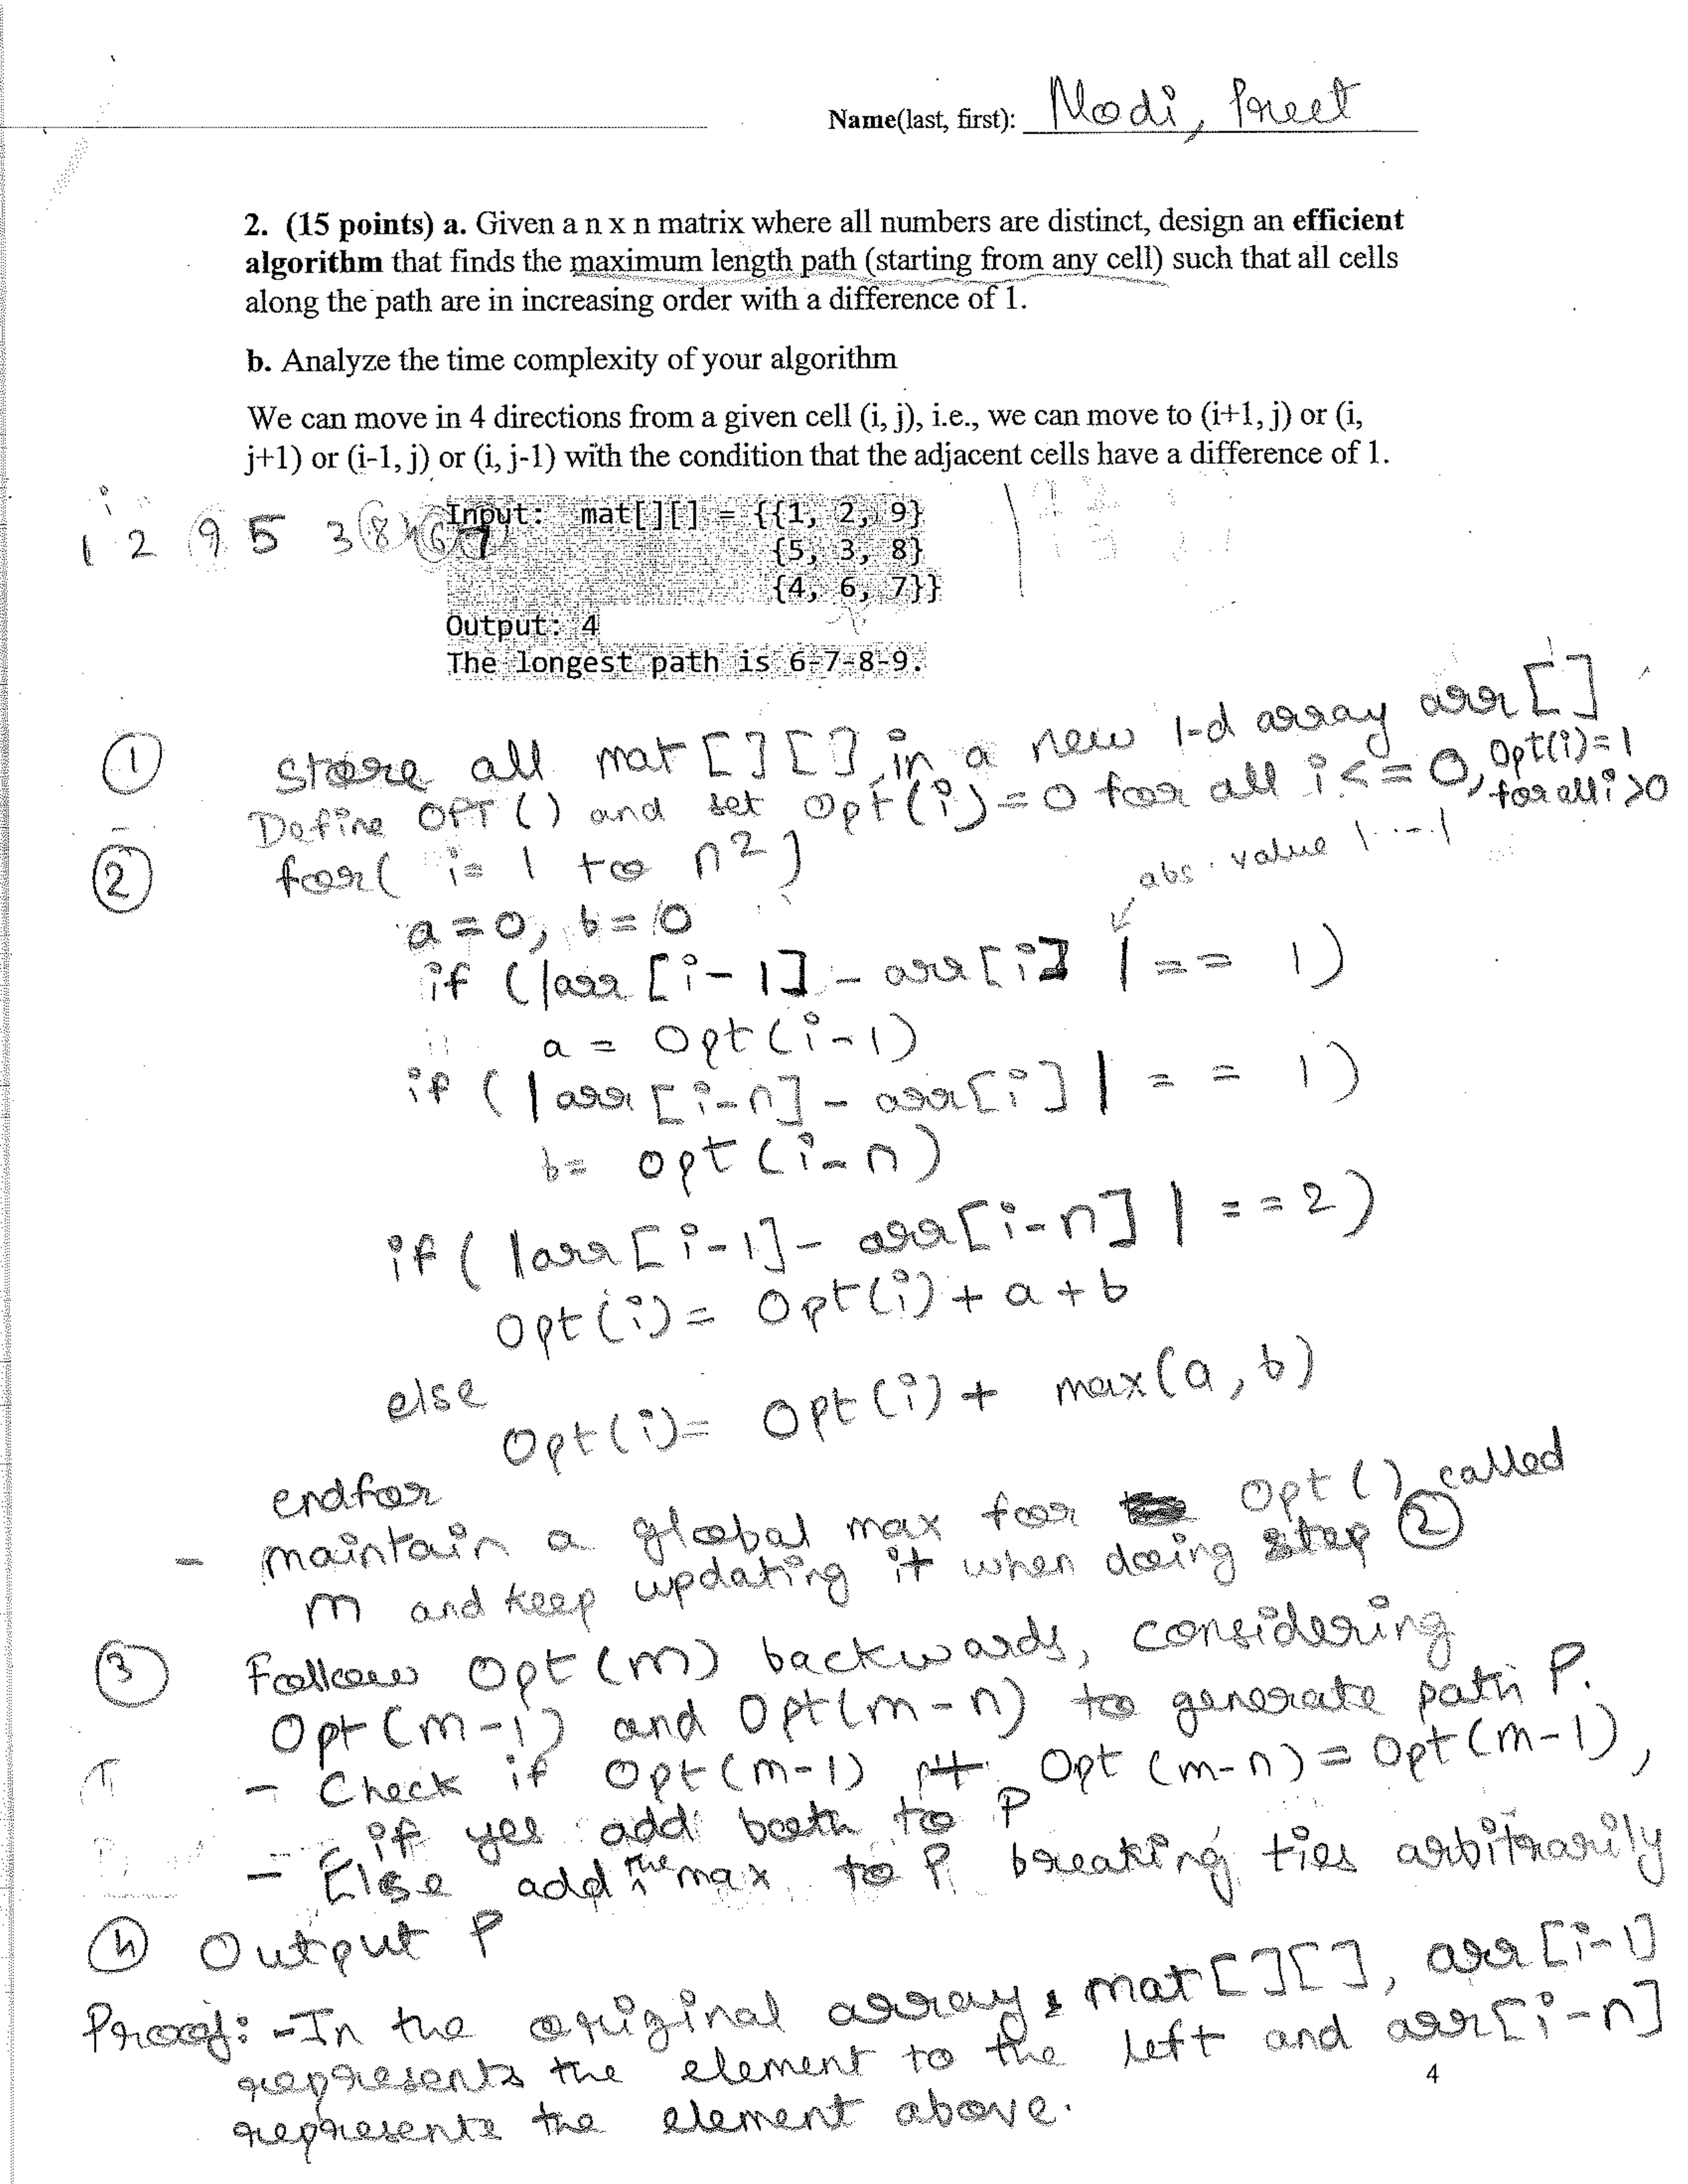 Name(last, first): Modi, Preet
2. (15 points) a. Given a n x n matrix where all numbers are distinct, design an efficient
algorithm that finds the maximum length path (starting from any cell) such that all cells
along the path are in increasing order with a difference of 1.
b. Analyze the time complexity of your algorithm
We can move in 4 directions from a given cell (i, j), i.e., we can move to (i+1, j) or (i,
j+1) or (i-1, j) or (i, j-1) with the condition that the adjacent cells have a difference of 1.
i
1 2 9 5 3 8 4 6 7
Input: mat[][] = {{1, 2, 9}
{5, 3, 8}
{4, 6, 7}}
Output: 4
The longest path is 6-7-8-9.
① Store all mat[][] in a new 1-d array arr[]
Define OPT() and set Opt(i)=0 for all i<=0, Opt(i)=1 for all i>0
② for( i= 1 to n²)
abs. value |...|
a=0, b=0
if (|arr[i-1] - arr[i] | == 1)
a = Opt(i-1)
if (|arr[i-n] - arr[i] | == 1)
b= opt(i-n)
if( |arr[i-1]- arr[i-n] | ==2)
Opt(i)= Opt(i)+a+b
else
Opt(i)= Opt(i)+ max(a, b)
endfor
- maintain a global max for Opt() called
m and keep updating it when doing step ②
③ Follow Opt(m) backwards, considering
Opt(m-1) and Opt(m-n) to generate path P.
- Check if Opt(m-1) Opt(m-n)= Opt(m-1),
- if yes add both to P
- Else add the max to P breaking ties arbitrarily
④ Output P
Proof: -In the original array mat[][], arr[i-1]
represents the element to the left and arr[i-n]
represents the element above.
4